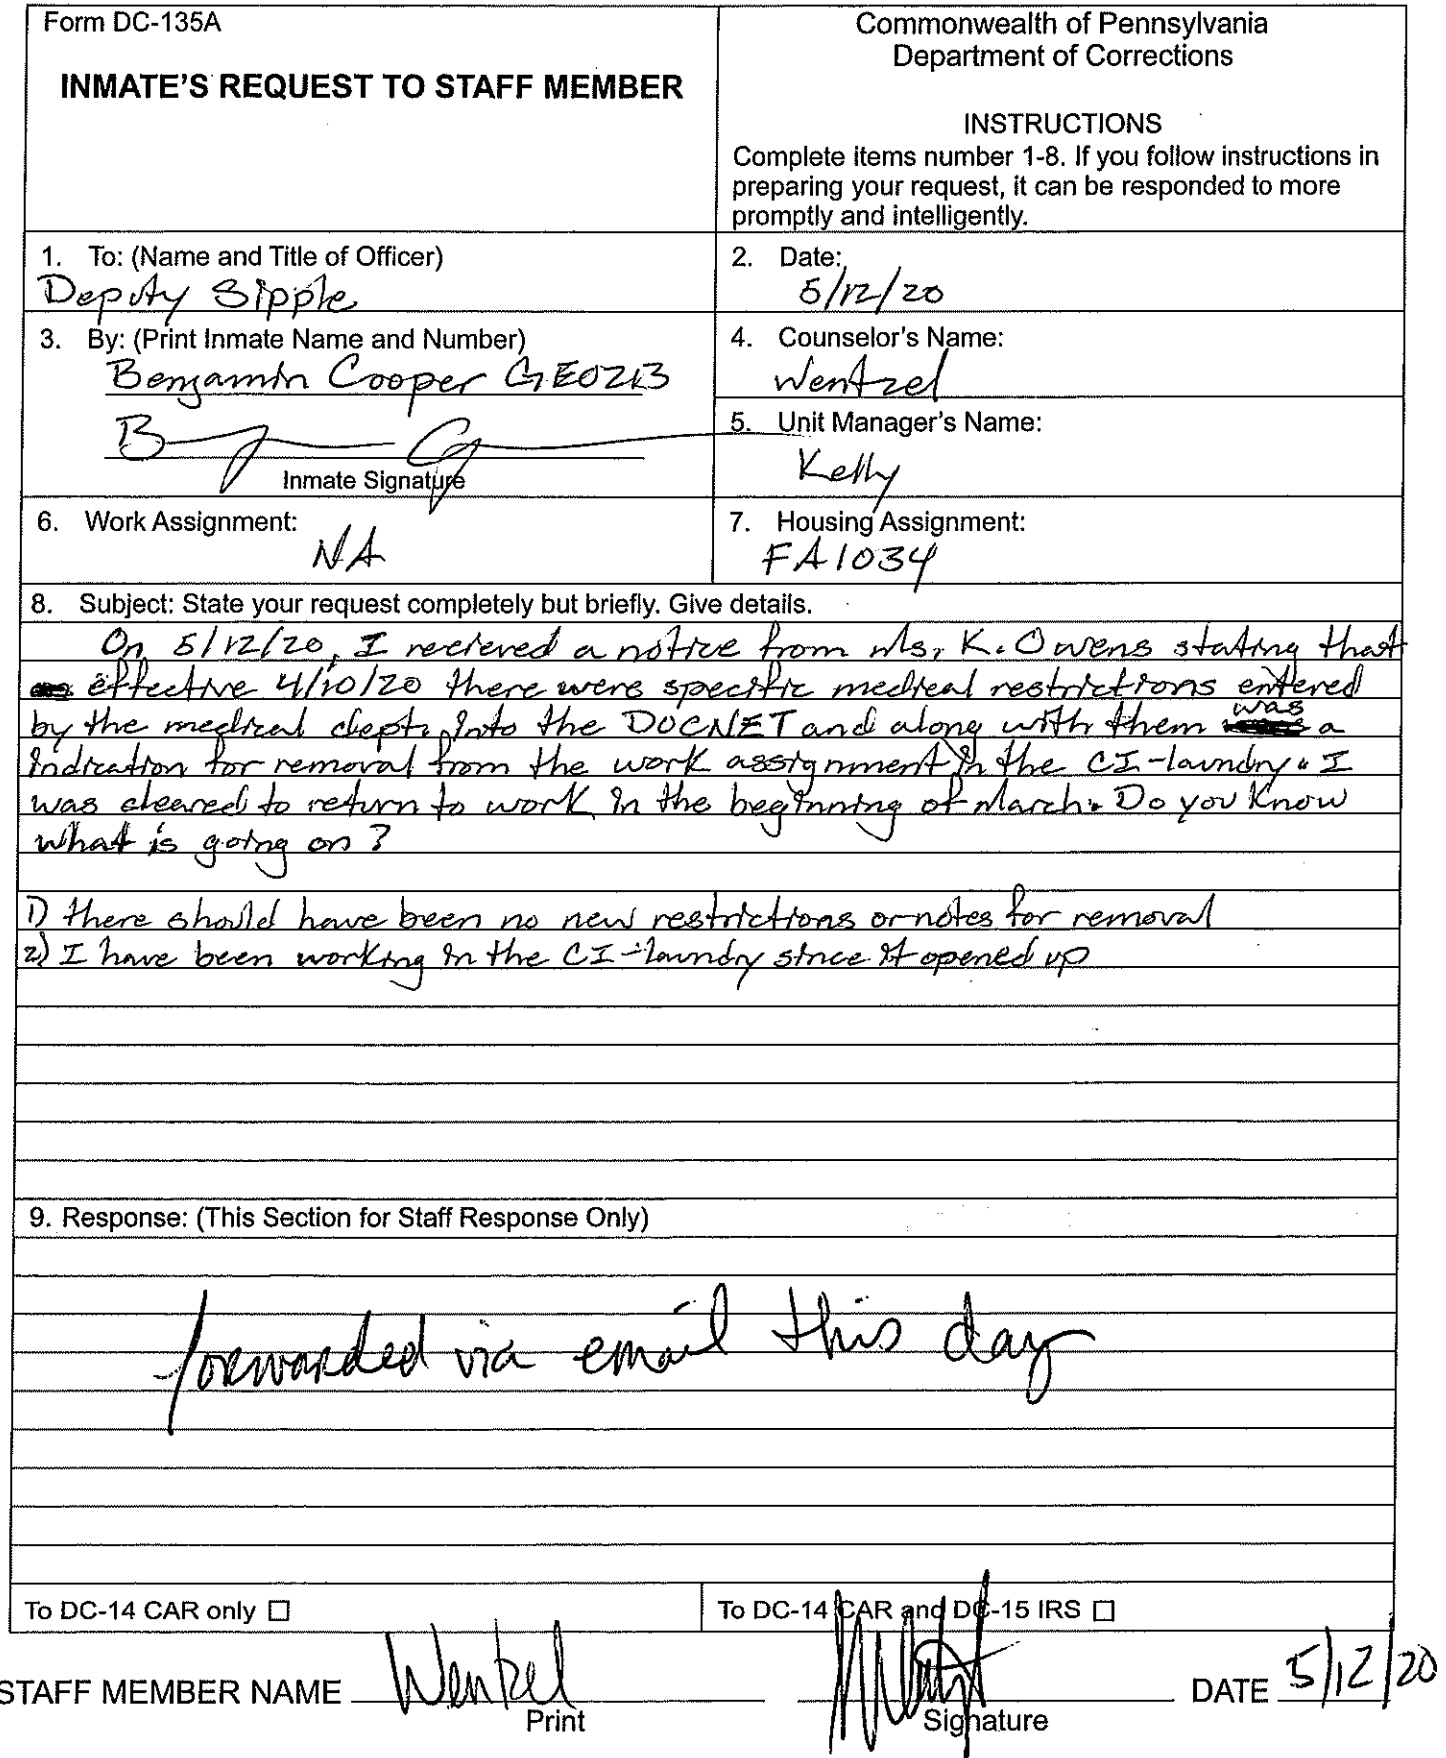 Form DC-135A
INMATE'S REQUEST TO STAFF MEMBER
Commonwealth of Pennsylvania
Department of Corrections
INSTRUCTIONS
Complete items number 1-8. If you follow instructions in
preparing your request, it can be responded to more
promptly and intelligently.
1. To: (Name and Title of Officer)
Deputy Sipple
2. Date:
5/12/20
3. By: (Print Inmate Name and Number)
Benjamin Cooper GE0213
Inmate Signature
4. Counselor's Name:
Wentzel
5. Unit Manager's Name:
Kelly
6. Work Assignment:
NA
7. Housing Assignment:
FA1034
8. Subject: State your request completely but briefly. Give details.
On 5/12/20, I recieved a notice from Ms. K. Owens stating that
effective 4/10/20 there were specific medical restrictions entered
by the medical dept. into the DOCNET and along with them was a
indication for removal from the work assignment in the CI-laundry. I
was cleared to return to work in the beginning of March. Do you know
what is going on?
1) there should have been no new restrictions or notes for removal
2) I have been working in the CI-laundry since it opened up
9. Response: (This Section for Staff Response Only)
forwarded via email this day
To DC-14 CAR only ☐
To DC-14 CAR and DC-15 IRS ☐
STAFF MEMBER NAME Wentzel DATE 5/12/20
Print Signature